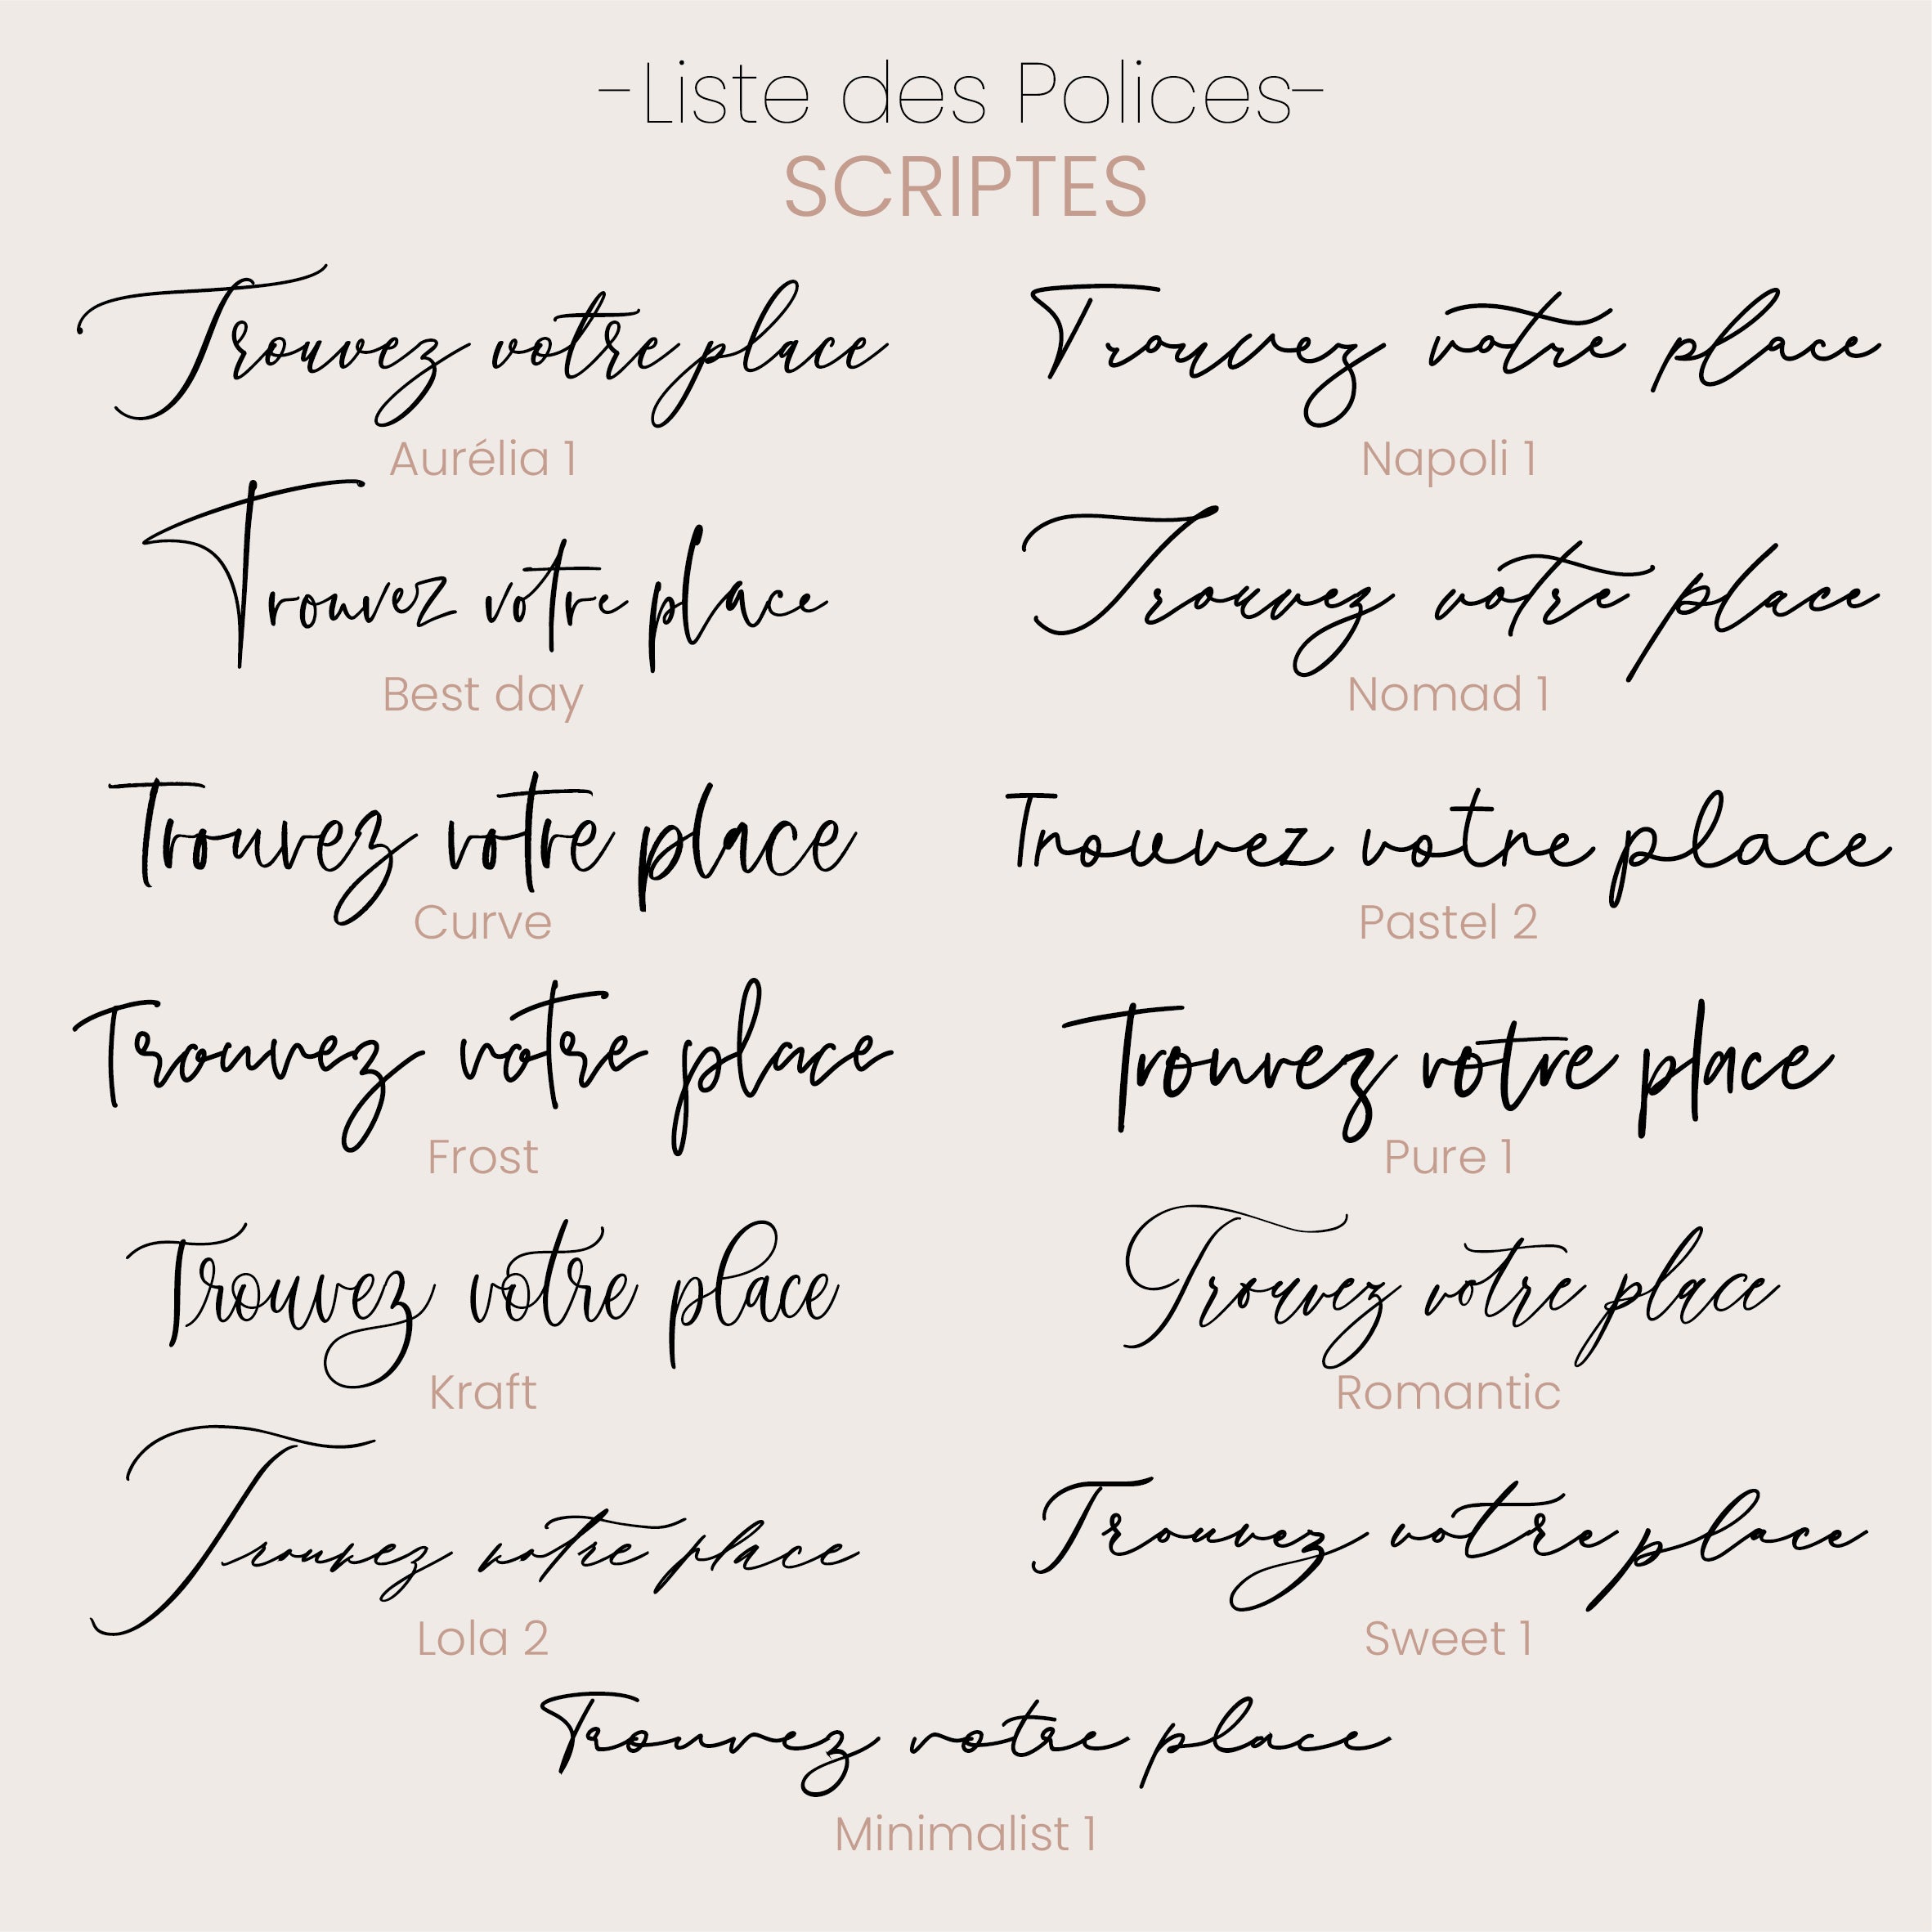 -Liste des Polices-
SCRIPTES
Trouvez votre place
Aurélia 1
Trouvez votre place
Napoli 1
Trouvez votre place
Best day
Trouvez votre place
Nomad 1
Trouvez votre place
Curve
Trouvez votre place
Pastel 2
Trouvez votre place
Frost
Trouvez votre place
Pure 1
Trouvez votre place
Kraft
Trouvez votre place
Romantic
Trouvez votre place
Lola 2
Trouvez votre place
Sweet 1
Trouvez votre place
Minimalist 1